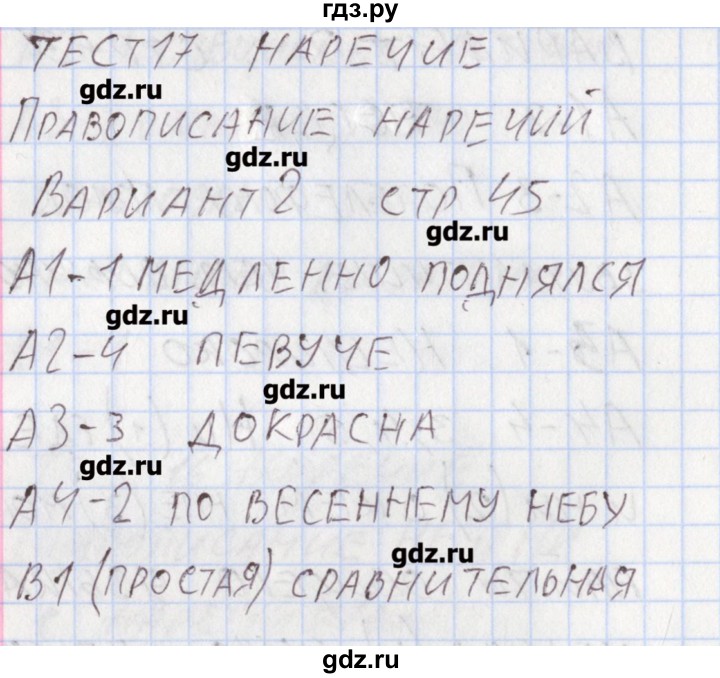 гдз.ру
ТЕСТ 17 НАРЕЧИЕ
gdz.ru
ПРАВОПИСАНИЕ НАРЕЧИЙ
gdz.ru
ВАРИАНТ 2 СТР 45
gdz.ru
А1-1 МЕДЛЕННО ПОДНЯЛСЯ
gdz.ru
А2-4 ПЕВУЧЕ
gdz.ru
А3-3 ДОКРАСНА
gdz.ru
А4-2 ПО ВЕСЕННЕМУ НЕБУ
gdz.ru
В1 (ПРОСТАЯ) СРАВНИТЕЛЬНАЯ
gdz.ru